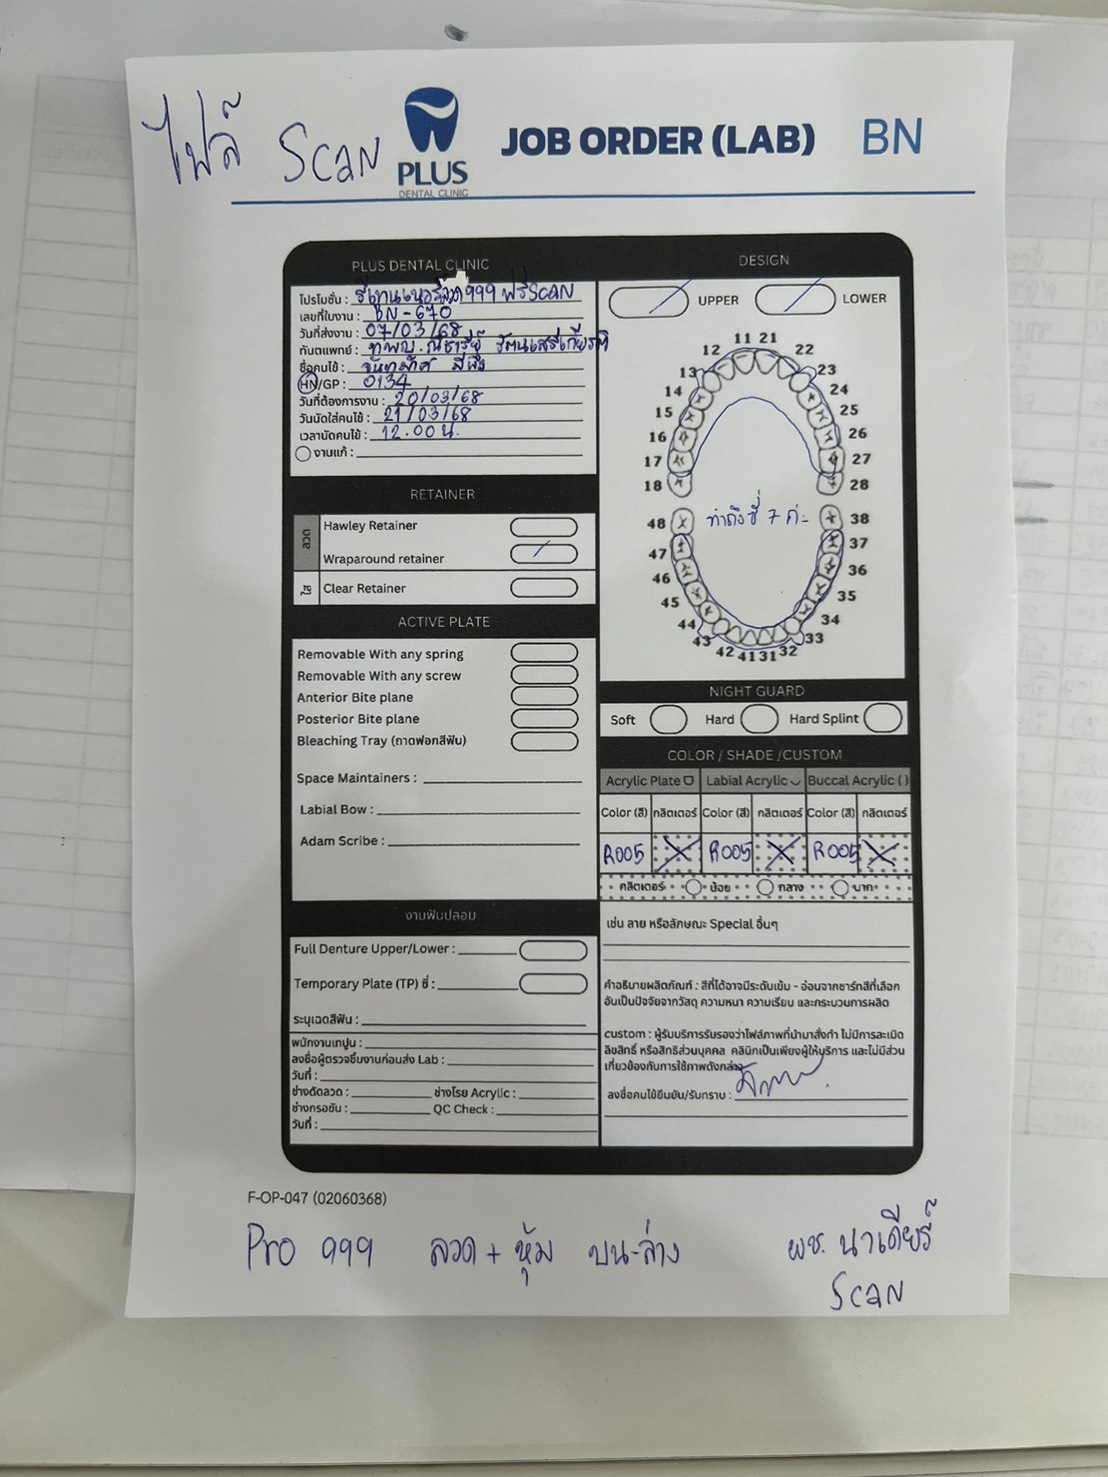 ไฟล์ Scan
PLUS
DENTAL CLINIC
JOB ORDER (LAB) BN
PLUS DENTAL CLINIC
โปรโมชั่น : รีเทนเนอร์ลวด 999 ฟรี Scan
เลขที่ใบงาน : BN-670
วันที่ส่งงาน : 07/03/68
ทันตแพทย์ : ทพญ.
ชื่อคนไข้ :
HN/GP : 0134
วันที่ต้องการงาน : 20/03/68
วันนัดใส่คนไข้ : 21/03/68
เวลานัดคนไข้ : 12.00 น.
งานแก้ :
RETAINER
ลวด
Hawley Retainer
Wraparound retainer
ใส
Clear Retainer
ACTIVE PLATE
Removable With any spring
Removable With any screw
Anterior Bite plane
Posterior Bite plane
Bleaching Tray (ถาดฟอกสีฟัน)
Space Maintainers :
Labial Bow :
Adam Scribe :
งานฟันปลอม
Full Denture Upper/Lower :
Temporary Plate (TP) ซี่ :
ระบุเฉดสีฟัน :
พนักงานเทปูน :
ลงชื่อผู้ตรวจชิ้นงานก่อนส่ง Lab :
วันที่ :
ช่างดัดลวด : ช่างโรย Acrylic :
ช่างกรอขัด : QC Check :
วันที่ :
DESIGN
UPPER LOWER
11 21
12 22
13 23
14 24
15 25
16 26
17 27
18 28
48 ทำถึงซี่ 7 ค่ะ 38
47 37
46 36
45 35
44 34
43 33
42 41 31 32
NIGHT GUARD
Soft Hard Hard Splint
COLOR / SHADE /CUSTOM
Acrylic Plate Labial Acrylic Buccal Acrylic ( )
Color (สี) กลิตเตอร์ Color (สี) กลิตเตอร์ Color (สี) กลิตเตอร์
R005 R005 R005
กลิตเตอร์ น้อย กลาง มาก
เช่น ลาย หรือลักษณะ Special อื่นๆ
คำอธิบายผลิตภัณฑ์ : สีที่ได้อาจมีระดับเข้ม - อ่อนจากชาร์ทสีที่เลือก
อันเป็นปัจจัยจากวัสดุ ความหนา ความเรียบ และกระบวนการผลิต
custom : ผู้รับบริการรับรองว่าไฟล์ภาพที่นำมาสั่งทำ ไม่มีการละเมิด
ลิขสิทธิ์ หรือสิทธิส่วนบุคคล คลินิกเป็นเพียงผู้ให้บริการ และไม่มีส่วน
เกี่ยวข้องกับการใช้ภาพดังกล่าว
ลงชื่อคนไข้ยืนยัน/รับทราบ :
F-OP-047 (02060368)
Pro 999 ลวด + หุ้ม บน-ล่าง ผช. นาเดียร์
Scan